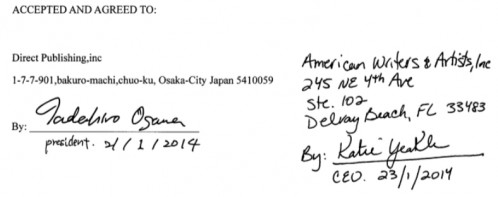 ACCEPTED AND AGREED TO:
Direct Publishing,inc
1-7-7-901,bakuro-machi,chuo-ku, Osaka-City Japan 5410059
By: Tadehiro Osana
president. 21/1/2014
American Writers & Artists, Inc
245 NE 4th Ave
Ste. 102
Delray Beach, FL 33483
By: Katie Yeakle
CEO. 23/1/2014